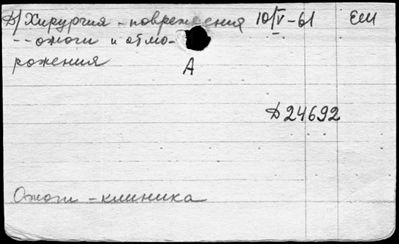 Д) Хирургия - повреждения 10/V-61 ЕШ
-- ожоги и отмо-
рожения
А
Д24692
Ожоги - клиника